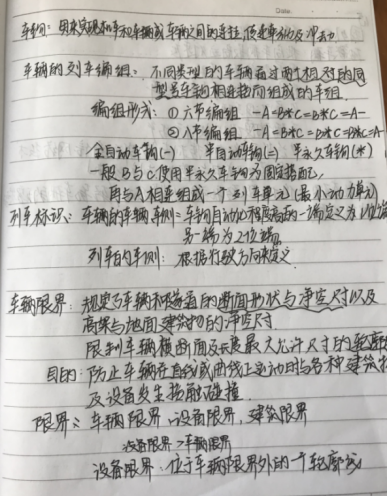 Date.
车钩: 用来实现机车和车辆或车辆之间的连挂,传递牵引力及冲击力
车辆的列车编组: 不同类型的车辆通过两个相对的同
型号车钩相连挂而组成的车组.
编组形式: ① 六节编组 -A=B*C=B*C=A-
② 八节编组 -A=B*C=B*C=B*C=A-
全自动车钩(-) 半自动车钩(=) 半永久车钩(*)
一般 B与C使用半永久车钩为固定搭配,
再与A相连组成一个列车单元(最小动力单元)
列车标识: 车辆的车辆车侧=车钩自动化程度高的一端定义为1位端
另一端为2位端.
列车的车侧: 根据行驶方向来定义.
车辆限界: 规定了车辆和隧道的断面形状与净空尺寸以及
高架与地面建筑物的净空尺寸
限制车辆横断面及长度最大允许尺寸的轮廓
目的: 防止车辆在直线或曲线上运动时与各种建筑物
及设备发生接触碰撞.
限界: 车辆限界、设备限界、建筑限界
设备限界>车辆限界
设备限界: 位于车辆限界外的一个轮廓线